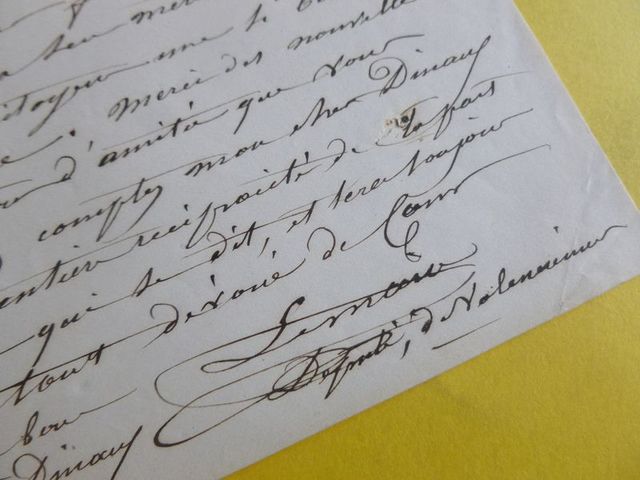 citoyen une si
Merci des nouvelle
d'amitié que vous
comptez mon cher Dinaux
entière réciprocité de la part
qui se dit, et sera toujour
tout dévoué de Cœur
Lemaire
bon Député, de Valenciennes
Dinaux